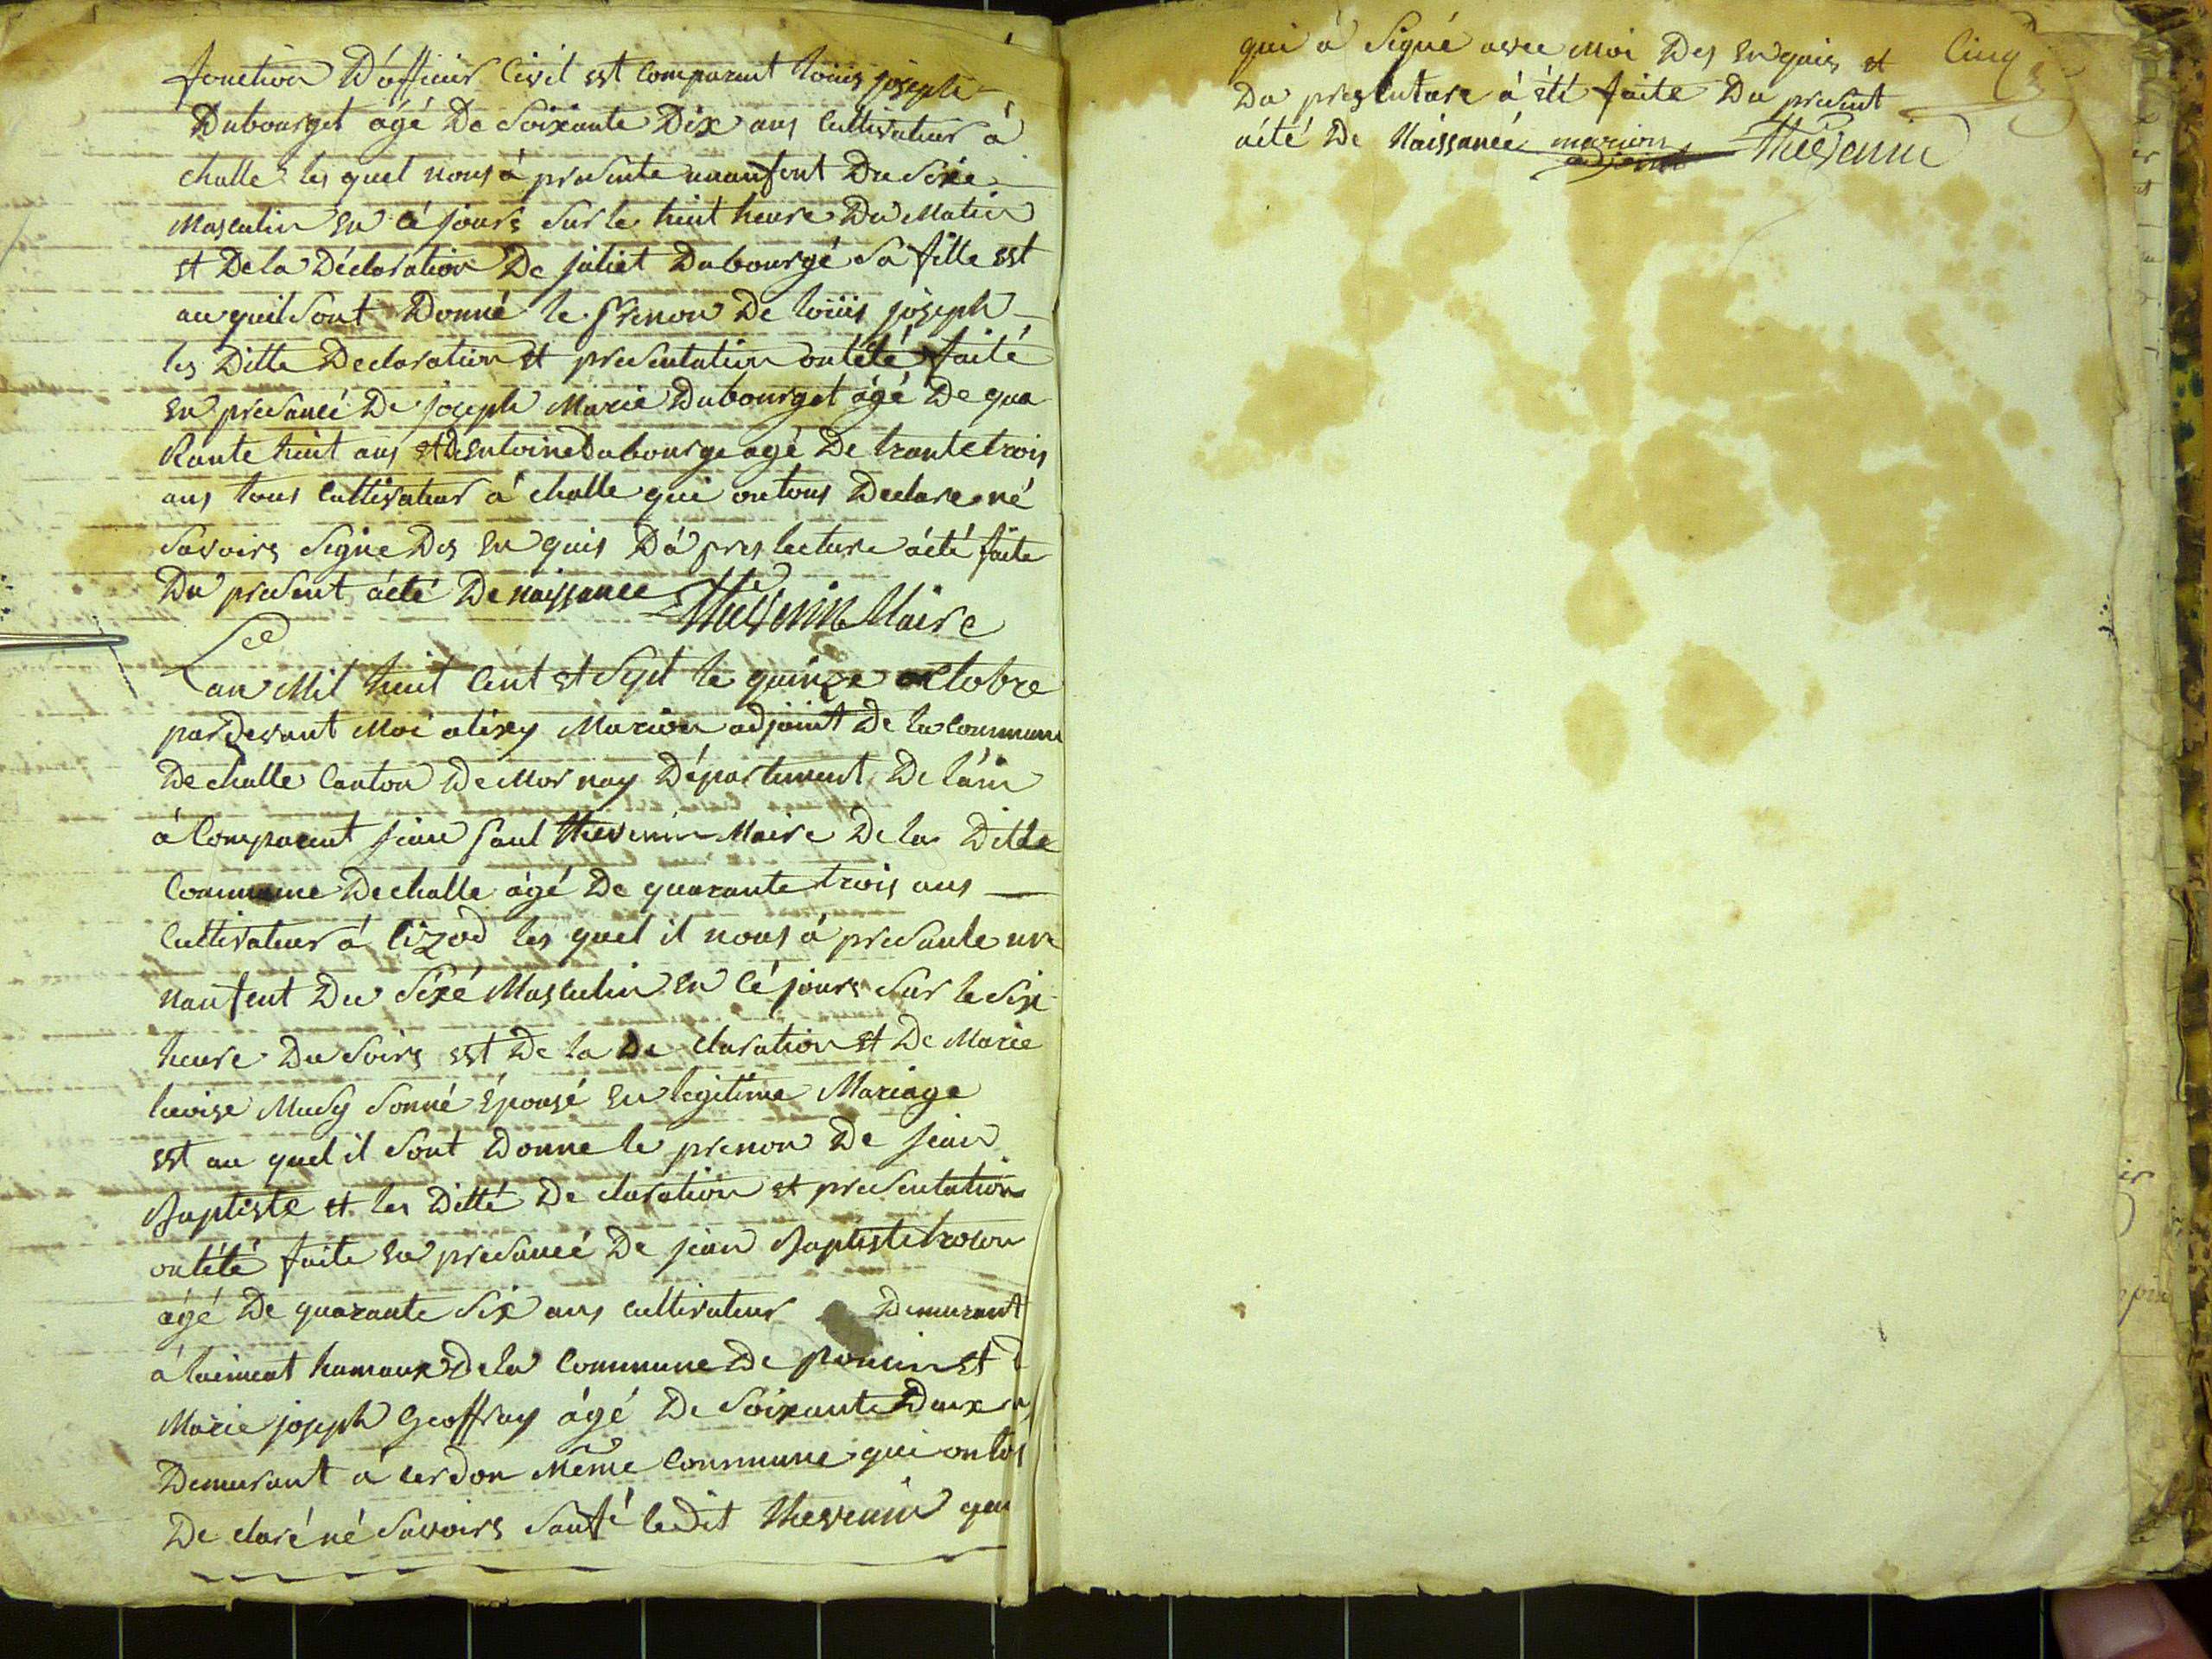 fonction D'officier Civil est Comparent Louis joseph
Dubourget âgé De Soixante Dix ans Cultivateur à
challe les quel nous à presente unanfent Du Sexe
Masculin En cé jours Sur le huit heure Du Matin
et De la Déclaration De juliet Dubourgé Sa fille est
au quil Sont Donné le Prenon De louis joseph
les Ditte Declaration et presentation ontété faité
En presancé De joseph Marie Dubourget âgé De qua
Rante huit ans et De Entoine Dubourge agé De trante trois
ans tous Cultivateur à challe qui ontous Declare né
Savoirs Signe Des En quis D'á pres lecture à été faite
Du present ácté De naissance Thevenin Maire
Lan Mil huit Cent et Sept le quinze octobre
par Devant Moi alixy Marion adjoint De la Commune
De challe Canton De Mornay Département De láin
à Comparent jean Paul thevenin Maire De la Ditte
Commune De challe âgé De quarante trois ans
Cultivateur á Cizod les quel il nous á presante un
nanfent Du Séxé Masculin En Cé jours Sur le Six
heure Du Soirs est De la De claration et De Marie
lueise Mudy Sonné Épousé En legitime Mariage
est au quel il Sont Donne le prenon De jean
Baptiste et les Ditté De claration et presentation
ontété faite En presancé De jean Baptiste
âgé De quarante Six ans Cultivateur Demurant
á De la Commune De poncin et
Marie joseph Geoffray âgé De Soixante Deux
Demurant á Cerdon Même Commune qui ontos
De claré né Savoirs Sanfé ledit thevenin qui
qui á Signé avec Moi Des En quis et
Da pres lutare á été faite Du present
ácté De Naissancé marion adjoint Thevenin
Cinq